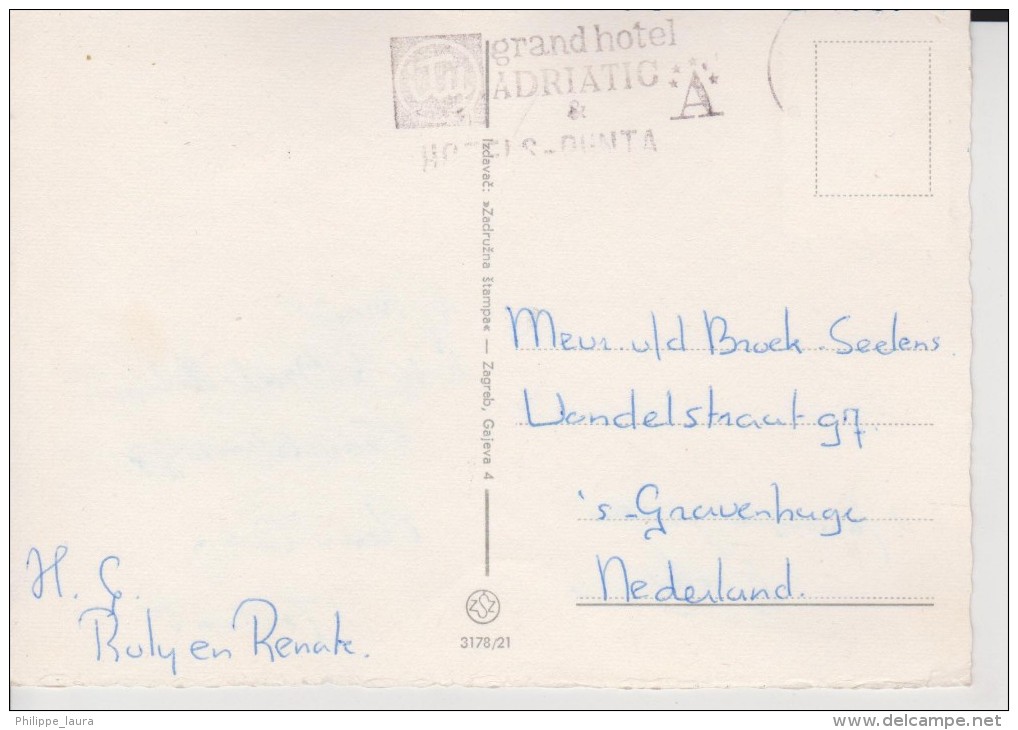 grand hotel
ADRIATIC
&
A
HOTELS-PUNTA
Izdavač: »Zadružna štampa« — Zagreb, Gajeva 4
Mevr. v/d Broek-Seelens.
Wandelstraat 97
's-Gravenhage
Nederland.
H. G.
Ruly en Renate.
3178/21
Philippe_laura
www.delcampe.net